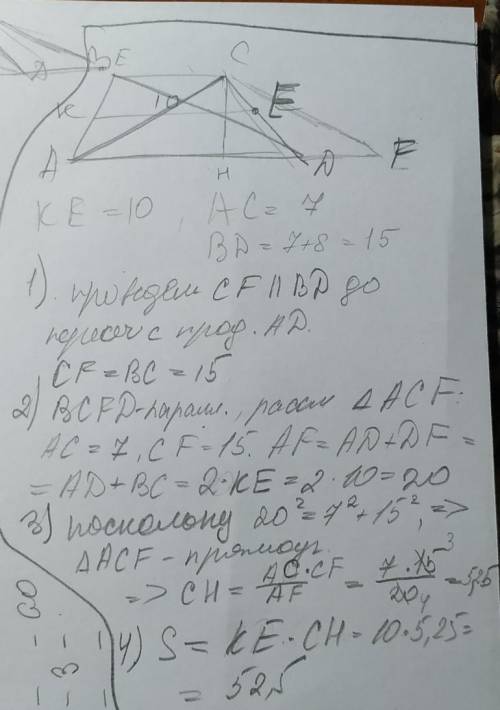 B E C
K 10 E
A H D F
KE = 10, AC = 7
BD = 7+8 = 15
1) проведём CF || BD до
пересеч с прод. AD.
CF = BC = 15
2) BCFD-паралл., рассм △ACF:
AC = 7, CF = 15. AF = AD + DF =
= AD + BC = 2·KE = 2·10 = 20
3) поскольку 20² = 7² + 15², =>
△ACF - прямоуг.
=> CH = AC·CF / AF = 7·15 3 / 20 4 = 5,25
4) S = KE·CH = 10·5,25 =
= 52,5